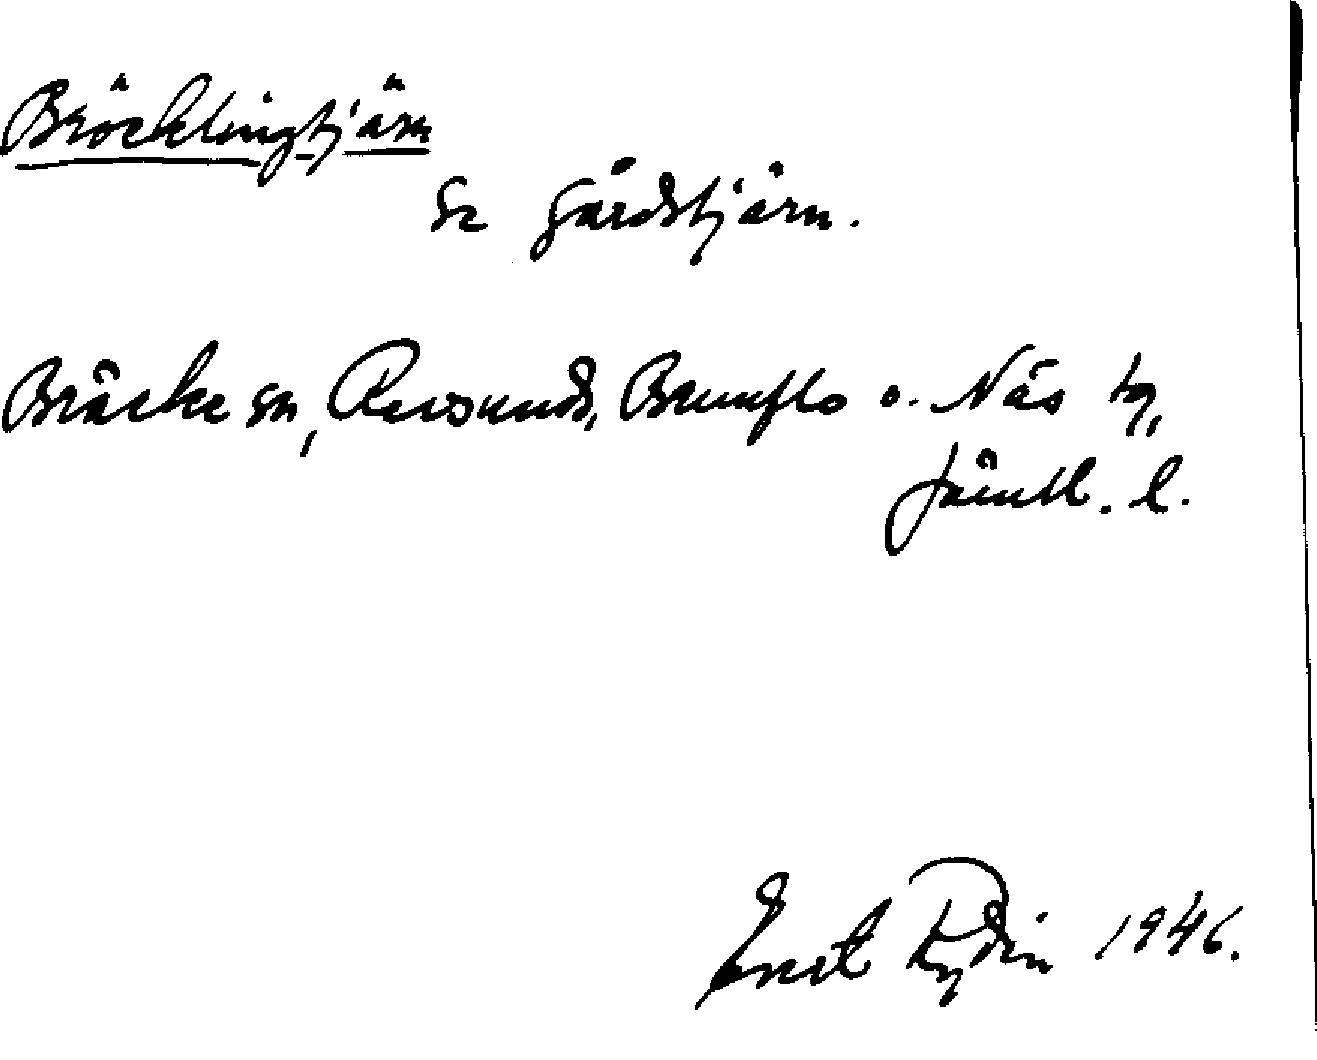 Bröcklingtjärn
Se Gårdstjärn.
Bräcke sn, Revsunds, Brunflo o. Näs tg,
Jämtl. l.
Ernst Rydin 1946.